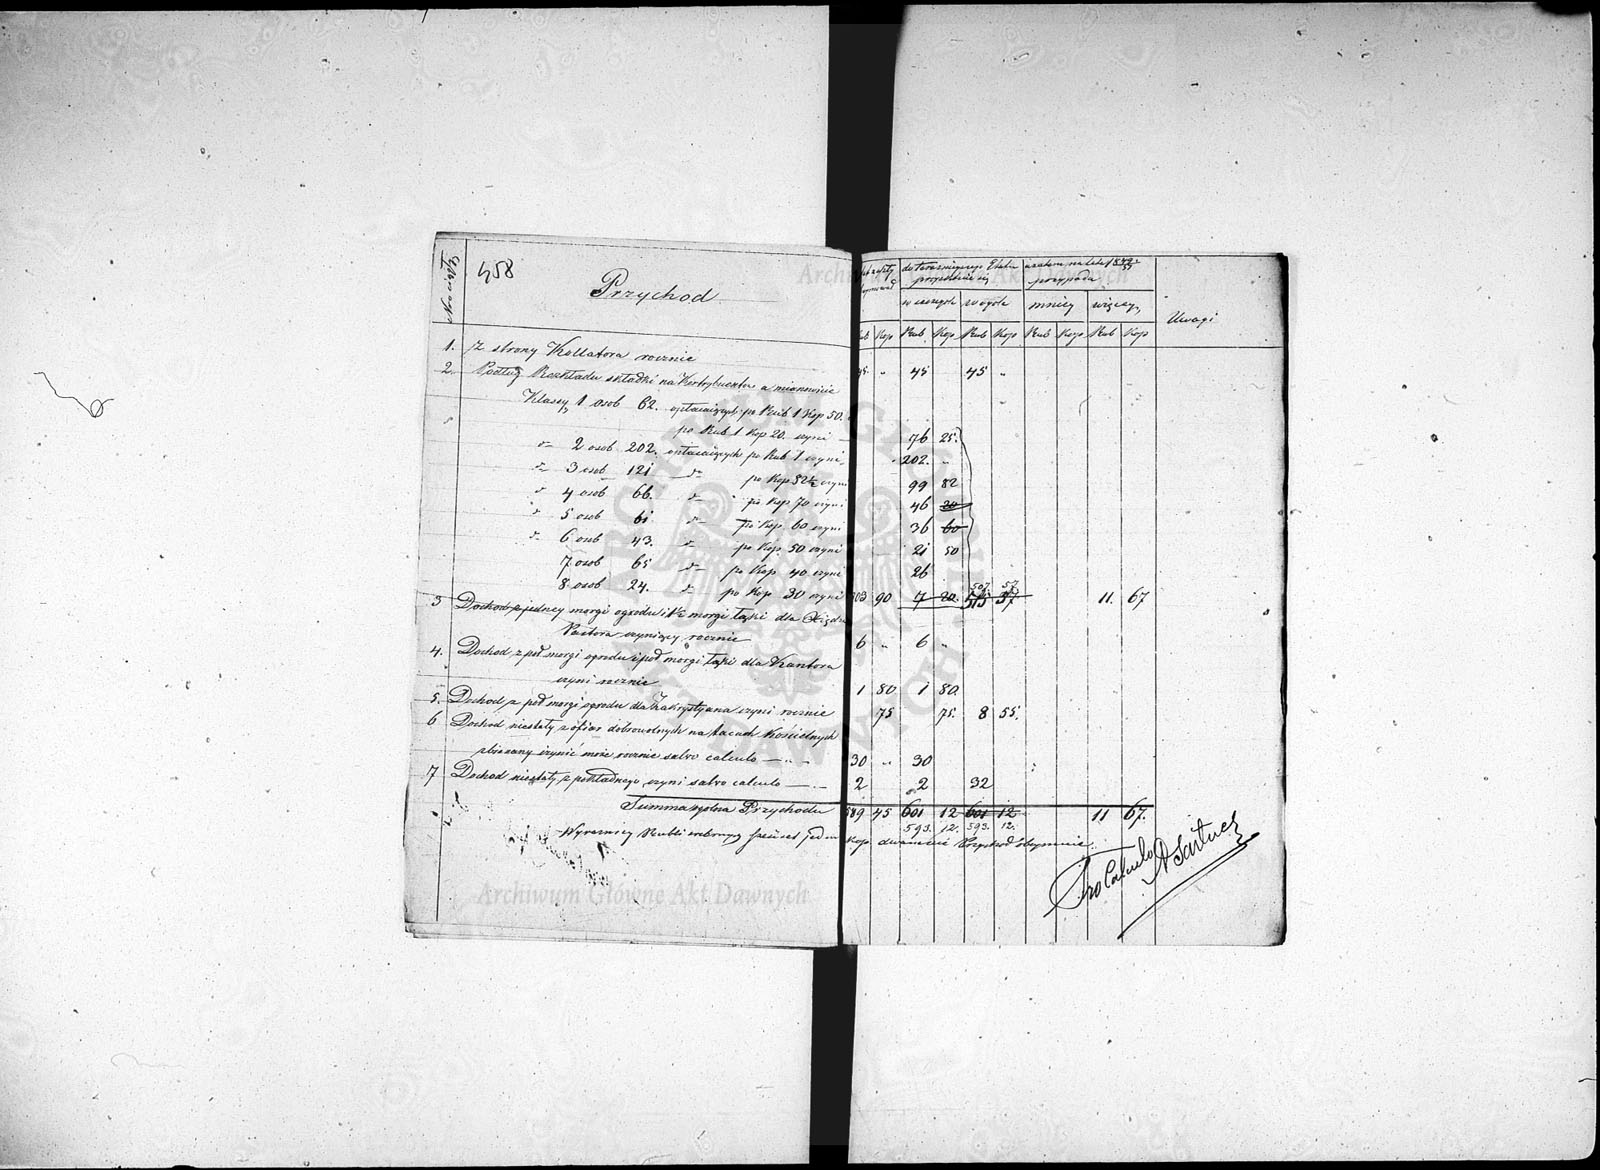 458
Przychod
1. Z strony Kollatora rocznie 45 „ 45 45 „
2. Podług Rozkładu składki na Kontrybuenta a mianowicie
Klassy 1 osob 62. opłacaiących po Rub 1 Kop 50.
po Rub 1 Kop 20. czyni 76 25.
d° 2 osob 202. opłacaiących po Rub 1 czyni 202. „
d° 3 osob 121 d° po Kop 82½ czyni 99 82
d° 4 osob 66. d° po Kop 70 czyni 46 20
d° 5 osob 61 d° po Kop. 60 czyni 36 60
d° 6 osob 43. d° po Kop. 50 czyni 21 50
7 osob 65 d° po Kop 40 czyni 26
507 57
8 osob 24. d° po Kop 30 czyni 503 90 7 20. 515 37 11. 67
3 Dochod z jedney morgi ogrodu i ½ morgi łąki dla Xiędza
Pastora czyniący rocznie 6 „ 6 „
4. Dochod z pół morgi ogrodu i pół morgi łąki dla Kantora
czyni rocznie 1 80 1 80.
5. Dochod z pół morgi ogrodu dla Zakrystyana czyni rocznie 75 75. 8 55.
6 Dochod niestały z ofiar dobrowolnych na tacach Kościelnych
zbierany czynić może rocznie salvo calculo 30 „ 30
7 Dochod niestały z pokładnego czyni salvo calculo 2 2 32
Summa ogólna Przychodu 589 45 601 12 601 12 11 67.
593. 12. 593. 12.
Wyrazniey Rubli srebrnych Kop. dwanascie Przychod obeymuie
Pro Calculo
do teraznieyszego Etatu
w czczegole w ogole mniey więcey
Kop Rub Kop Rub Kop Rub Kop Rub Kop
Uwagi
Archiwum Główne Akt Dawnych
Archiwum Główne Akt Dawnych
ARCHIWUM GŁÓWNE AKT DAWNYCH